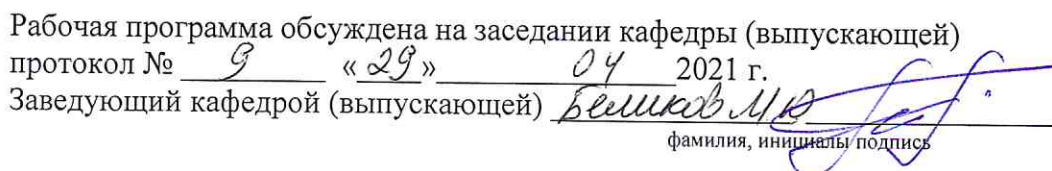 Рабочая программа обсуждена на заседании кафедры (выпускающей)
протокол № 9 «29» 04 2021 г.
Заведующий кафедрой (выпускающей) Беликов М Ю
фамилия, инициалы подпись